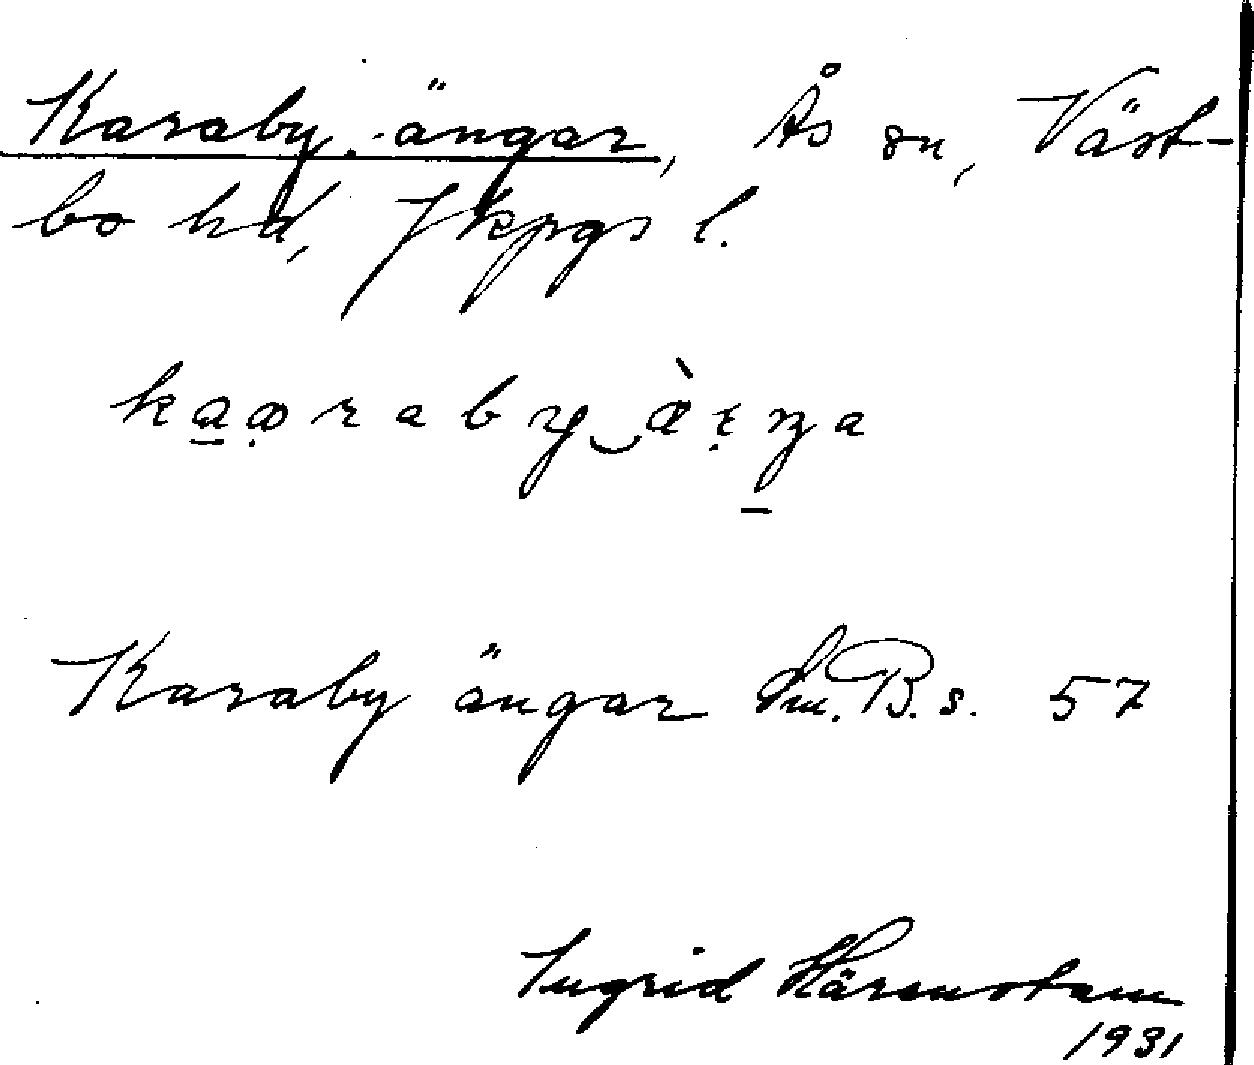 Karaby ängar, Ås sn, Väst-
bo hd, Jkpgs l.
Karaby ängar Sm. B. s. 57
Ingrid
1931